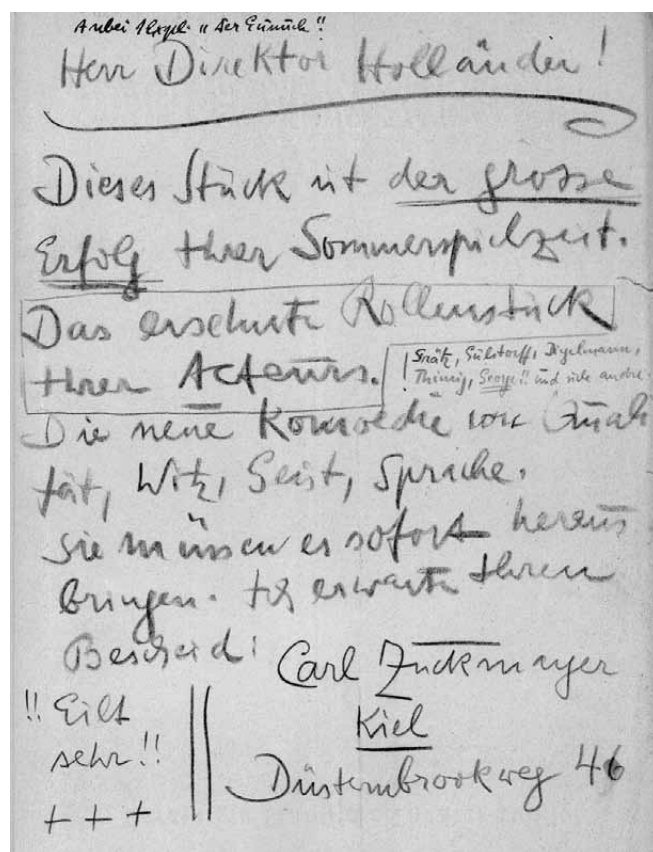 Anbei Expl. „Der Eunuch"
Herr Direktor Holländer!
Dieses Stück ist der grosse
Erfolg Ihrer Sommerspielzeit.
Das ersehnte Rollenstück
Ihrer Acteurs.
! Grätz, Gülstorff, Digelmann,
Thimig, George!! und viele andre.
Die neue Komoedie von Quali
tät, Witz, Geist, Sprache.
Sie müssen es sofort heraus
bringen. Ich erwarte Ihren
Bescheid!
Carl Zuckmayer
Kiel
Düsternbrookweg 46
!! Eilt
sehr!!
+ + +